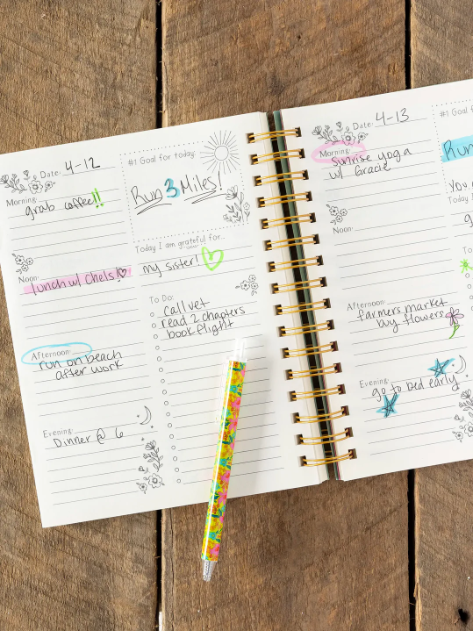 Date: 4-12
Morning:
grab coffee!!
Noon:
lunch w/ Chels!
Afternoon:
run on beach
after work
Evening:
Dinner @ 6
#1 Goal for today:
Run 3 Miles!
Today I am grateful for...
my sister!
To Do:
call vet
read 2 chapters
book flight
Date: 4-13
Morning:
sunrise yoga
w/ Gracie
Noon:
Afternoon:
farmers market
buy flowers
Evening:
go to bed early
#1 Goal f
Run
You
Today I
To Do: